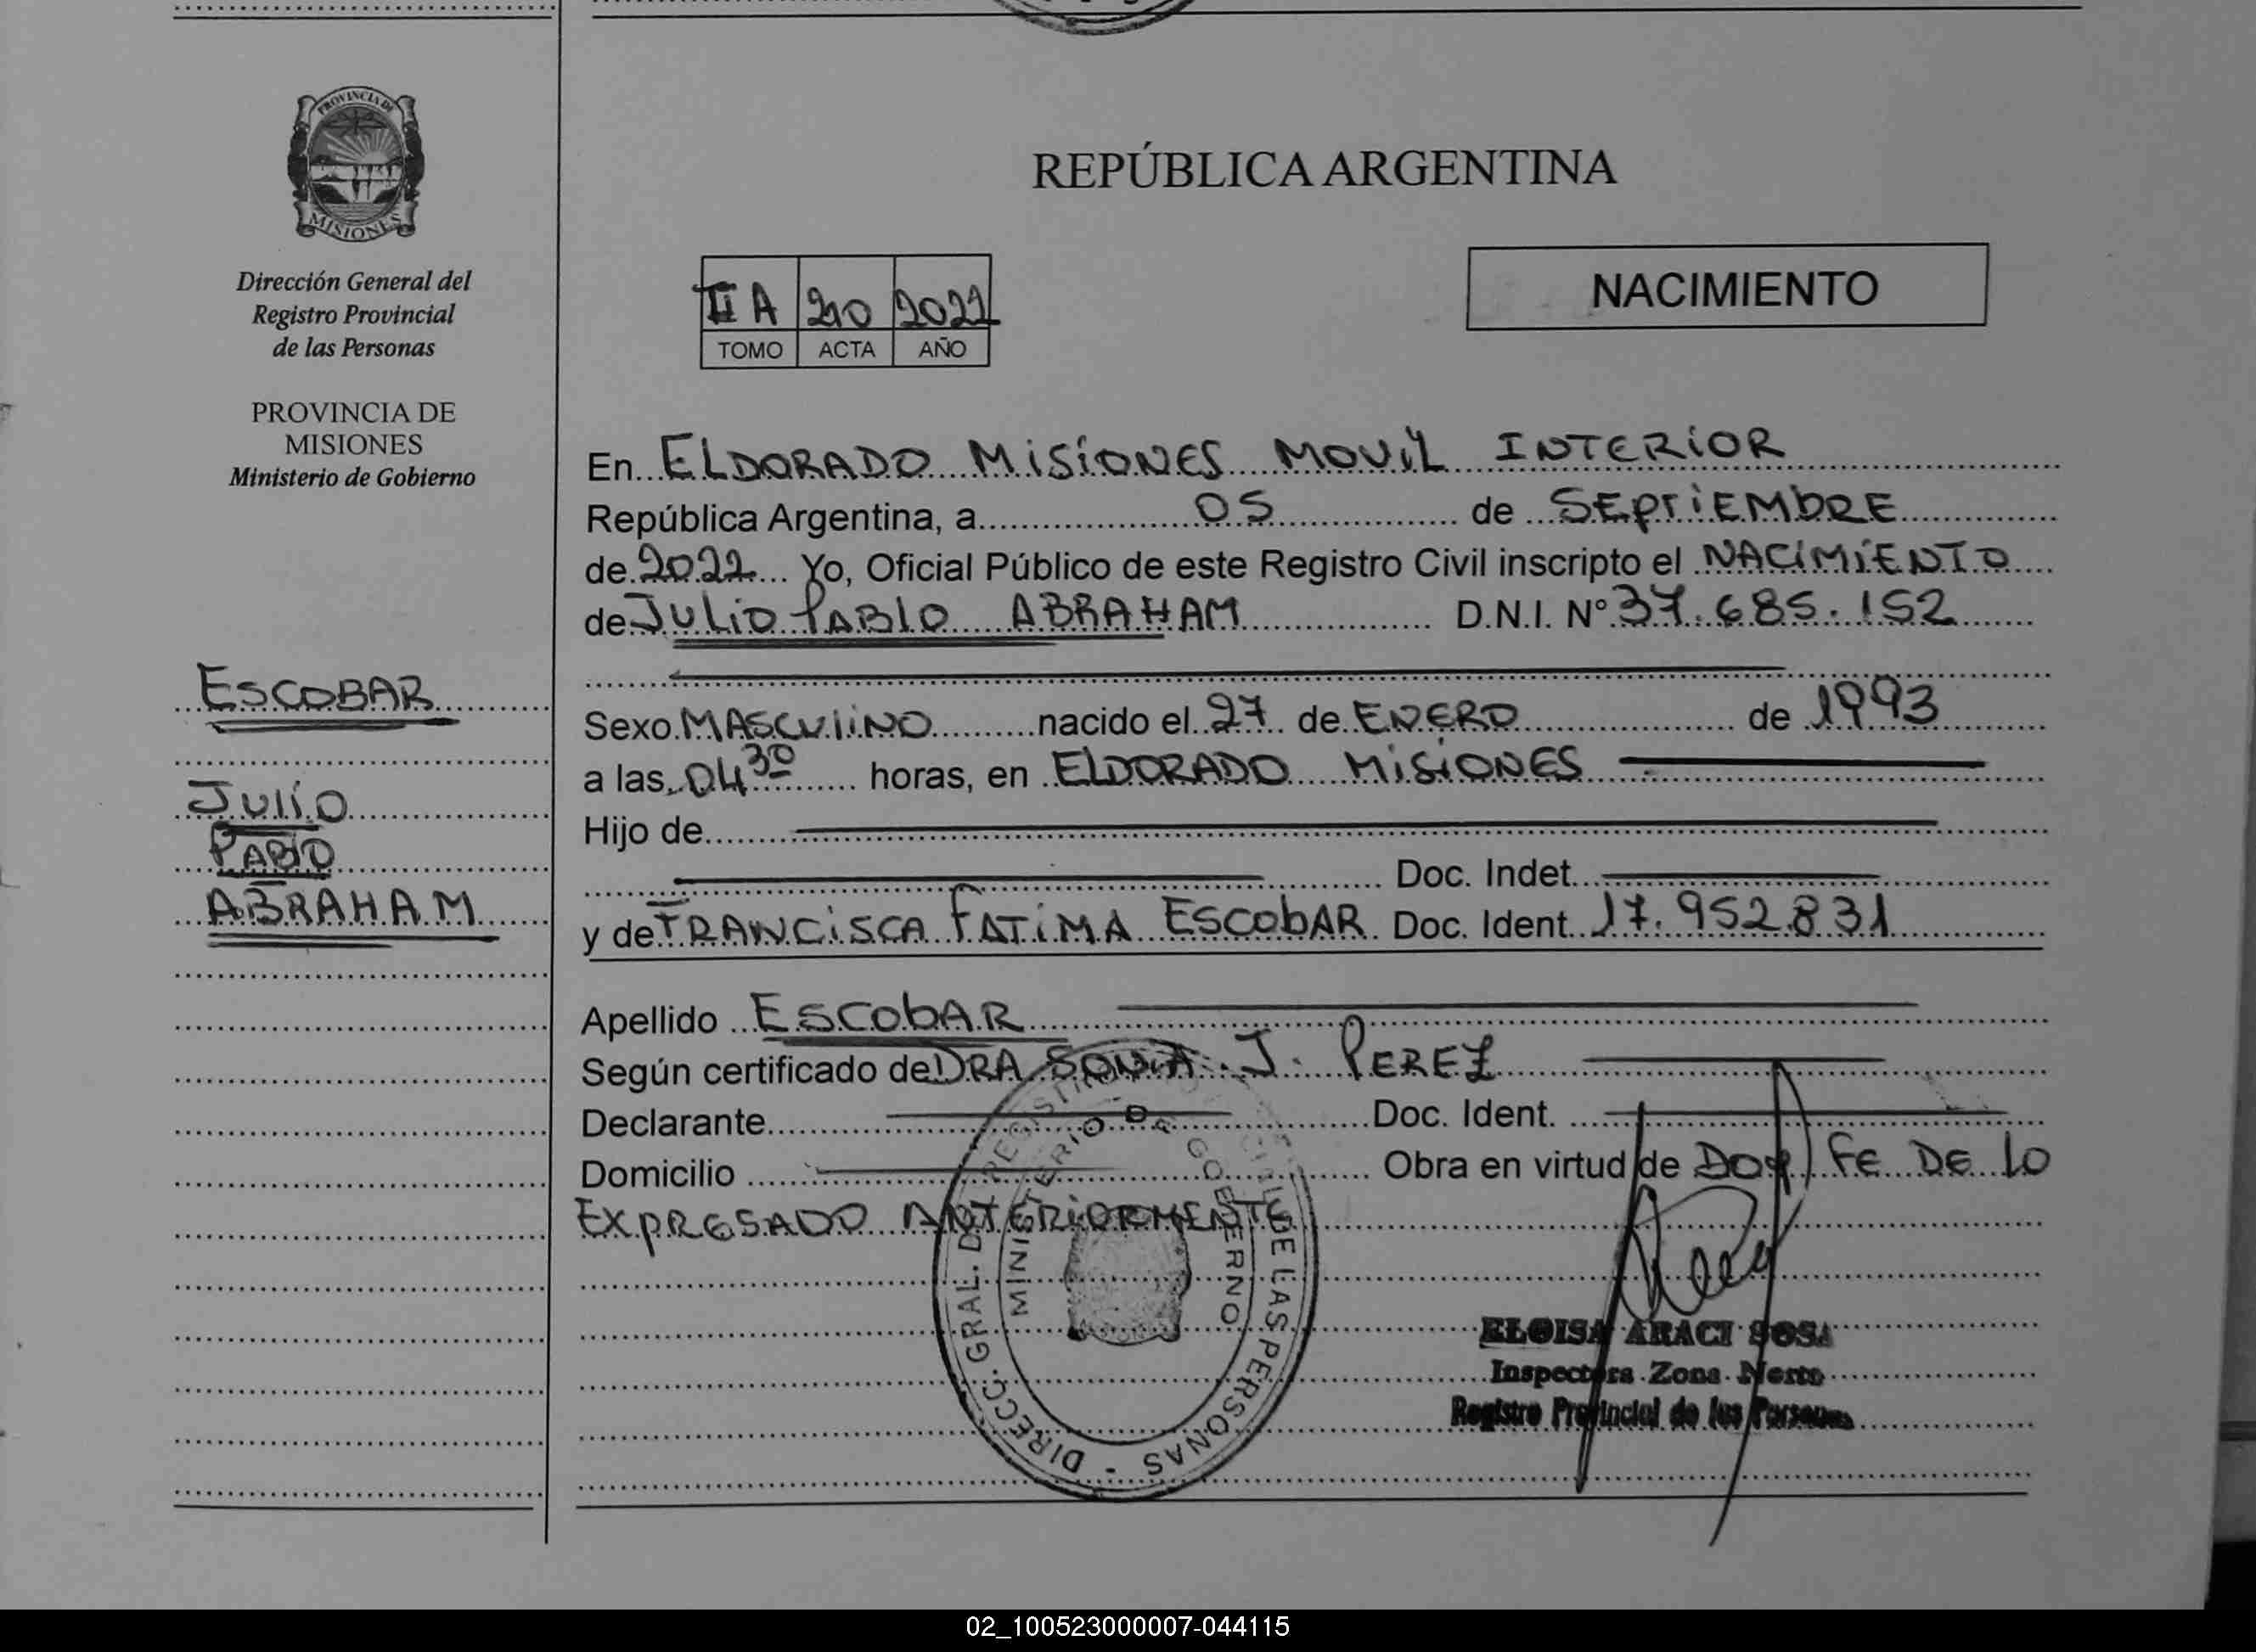 PROVINCIA DE
MISIONES
Dirección General del
Registro Provincial
de las Personas
PROVINCIA DE
MISIONES
Ministerio de Gobierno
ESCOBAR
JULIO
PABLO
ABRAHAM
REPÚBLICA ARGENTINA
NACIMIENTO
II A 210 2022
TOMO ACTA AÑO
En ELDORADO MISIONES MOVIL INTERIOR
República Argentina, a 05 de SEPTIEMBRE
de 2022 Yo, Oficial Público de este Registro Civil inscripto el NACIMIENTO
de JULIO PABLO ABRAHAM D.N.I. N° 37.685.152
Sexo MASCULINO nacido el 27 de ENERO de 1993
a las 04 30 horas, en ELDORADO MISIONES
Hijo de
Doc. Indet.
y de FRANCISCA FATIMA ESCOBAR Doc. Ident. 17.952.831
Apellido ESCOBAR
Según certificado de DRA SONIA J. PEREZ
Declarante Doc. Ident.
Domicilio Obra en virtud de DOY FE DE LO
EXPRESADO ANTERIORMENTE
MINISTERIO DE GOBIERNO
ELOISA ARACI SOSA
Inspectora Zona Norte
Registro Provincial de las Personas
02_100523000007-044115